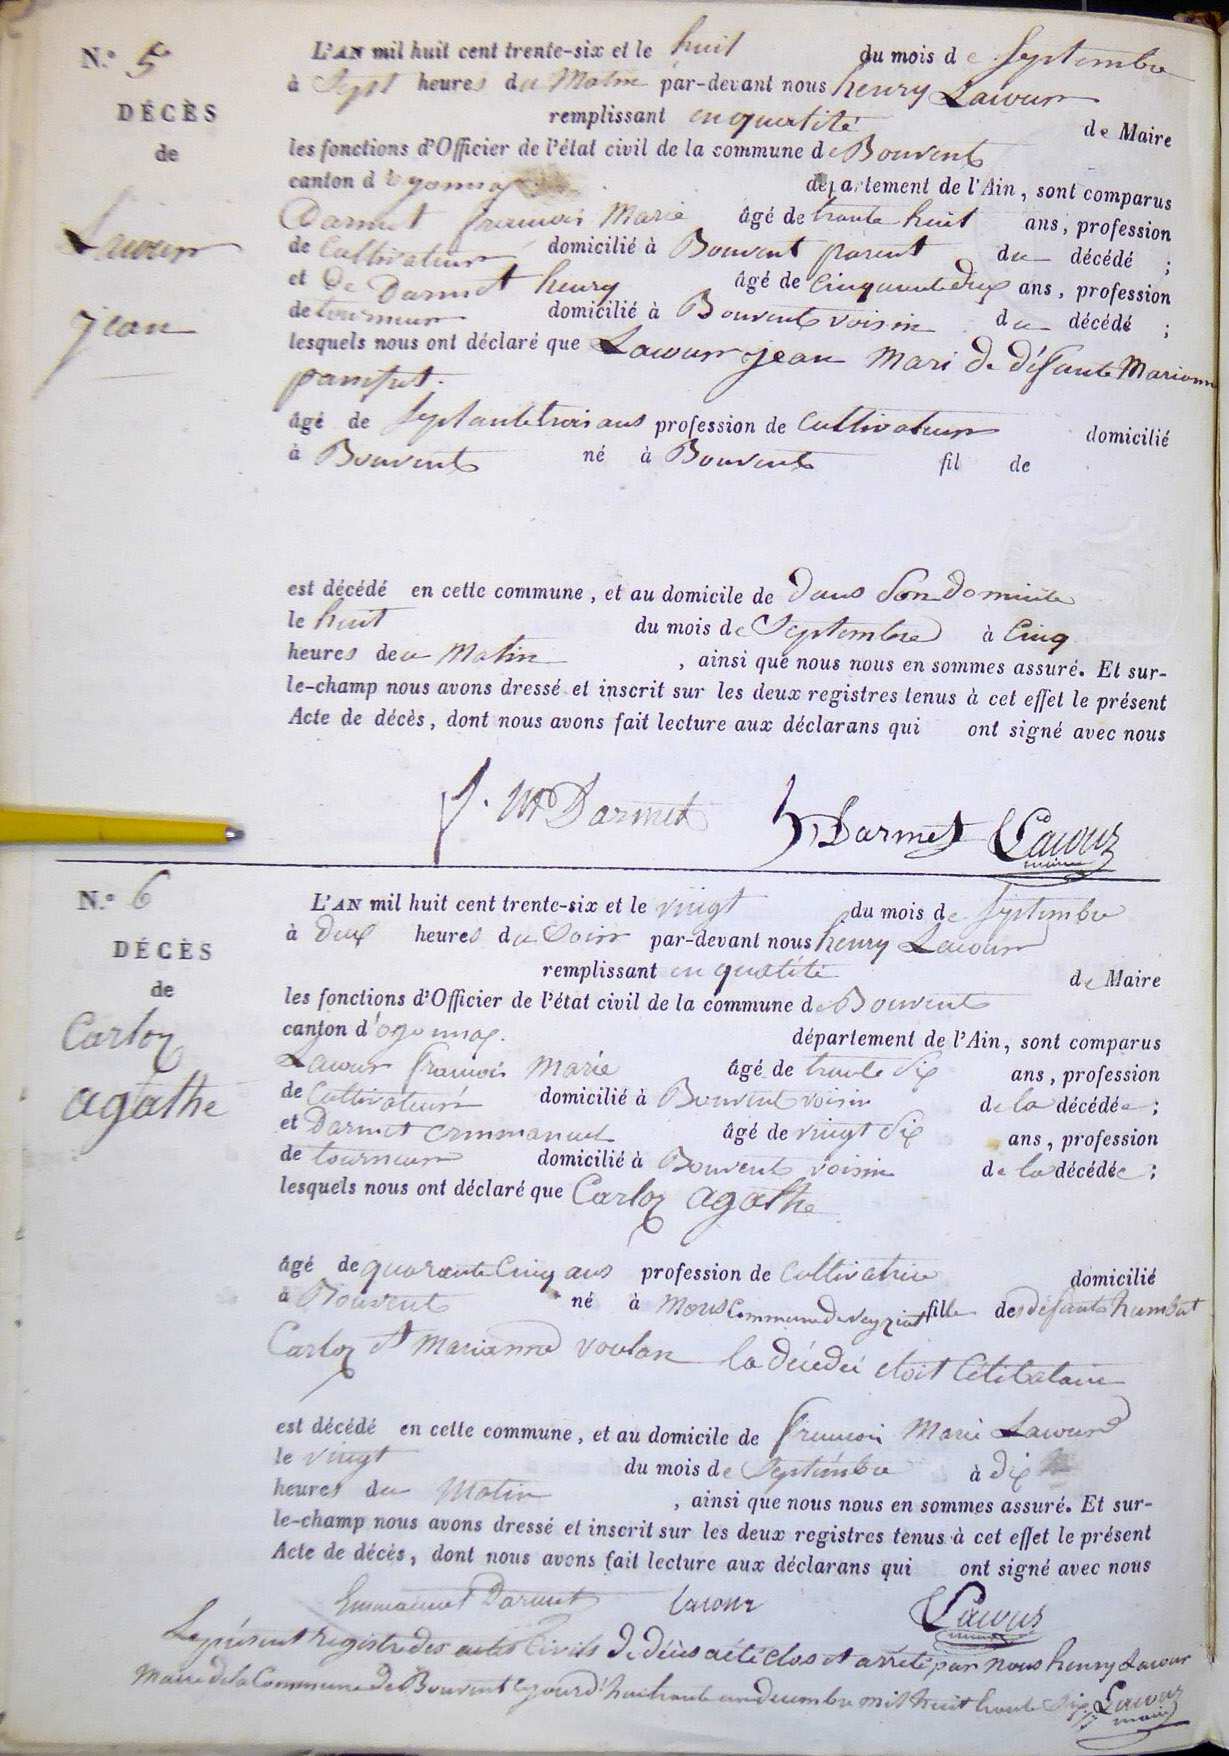 N.º 5
DÉCÈS
de
Lacour
jean
L'AN mil huit cent trente-six et le huit du mois de Septembre
à Sept heures du Matin par-devant nous henry Lacour
remplissant en quatité de Maire
les fonctions d'Officier de l'état civil de la commune de Bouvent
canton d'oyonnax département de l'Ain, sont comparus
Darmet francois Marie âgé de trante huit ans, profession
de Cultivateur domicilié à Bouvent parent du décédé ;
et De Darmet henry âgé de Cinquantedeux ans, profession
de tourneur domicilié à Bouvent voisin du décédé ;
lesquels nous ont déclaré que Lacour jean Mari de défante Marianne
pansut.
âgé de Septante trois ans profession de Cultivateur domicilié
à Bouvent né à Bouvent fil de
est décédé en cette commune, et au domicile de dans Son domicile
le huit du mois de Septembre à Cinq
heures deu Matin , ainsi que nous nous en sommes assuré. Et sur-
le-champ nous avons dressé et inscrit sur les deux registres tenus à cet effet le présent
Acte de décès, dont nous avons fait lecture aux déclarans qui ont signé avec nous
f. M Darmet h, Darmet Lacour
maire
N.º 6
DÉCÈS
de
Carloz
agathe
L'AN mil huit cent trente-six et le vingt du mois de Septembre
à deux heures du Soir par-devant nous henry Lacour
remplissant en quatité de Maire
les fonctions d'Officier de l'état civil de la commune de Bouvent
canton d'oyonnax. département de l'Ain, sont comparus
Lacour francois Marie âgé de trante Six ans, profession
de Cultivateur domicilié à Bouvent voisin de la décédée ;
et Darmet Emmanuel âgé de vingt Six ans, profession
de tourneur domicilié à Bouvent voisin de la décédée ;
lesquels nous ont déclaré que Carloz agathe
âgé de quarante Cinq ans profession de Cultivatrice domicilié
à Bouvent né à Mons Commune de veyziat fille des défants humbert
Carloz et Marianne voulan la décédée etoit Célibataire
est décédé en cette commune, et au domicile de francois Marie Lacour
le vingt du mois de Septembre à dix
heures du Matin , ainsi que nous nous en sommes assuré. Et sur-
le-champ nous avons dressé et inscrit sur les deux registres tenus à cet effet le présent
Acte de décès, dont nous avons fait lecture aux déclarans qui ont signé avec nous
Emmanuel Darmet lacour Lacour
maire
Le présent registre des actes Civils de décès a été clos et arrêté par nous henry Lacour
Maire de la Commune de Bouvent ce jourd'hui trante un decembre mil huit trante Six Lacour
maire